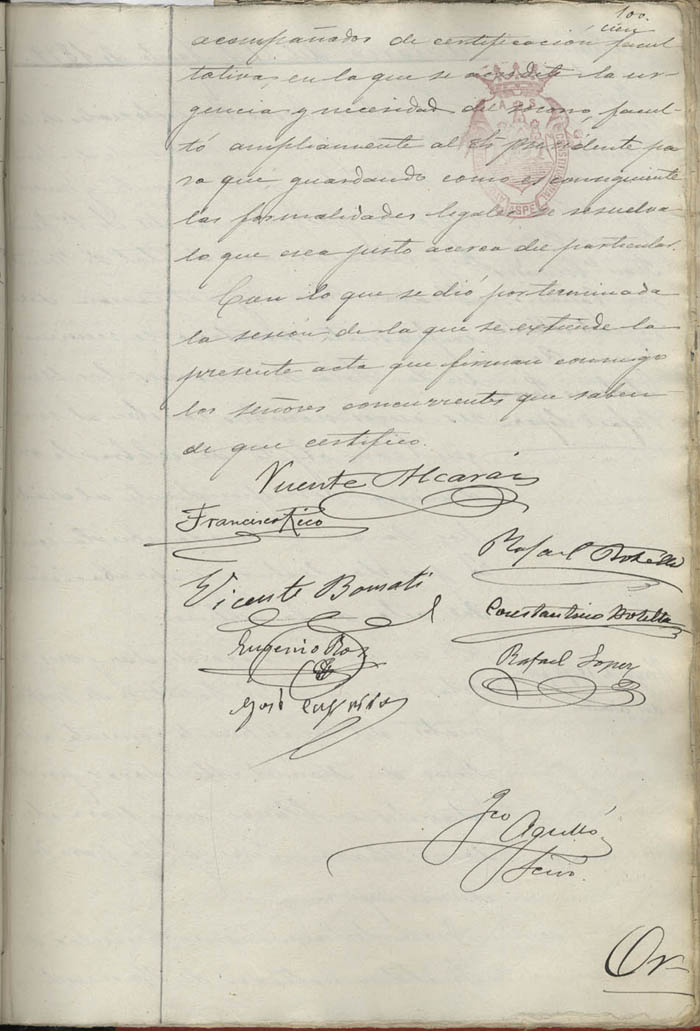 100.
cien
acompañados de certificación facul-
tativa, en la que se acredite la ur-
gencia y necesidad del socorro, facul-
tó ampliamente al Sr presidente pa-
ra que, guardando como es consiguiente
las formalidades legales se resuelva
lo que crea justo acerca del particular.
Con lo que se dió por terminada
la sesión, de la que se extiende la
presente acta que firman conmigo
los señores concurrentes que saben
de que certifico.
Vicente Alcaraz
Francisco Rico
Rafael Botella
Vicente Bonmati
Constantino Botella
Eugenio Roz
Rafael Lopez
José
Fco Agulló
Scrio.
Or-
ASPE